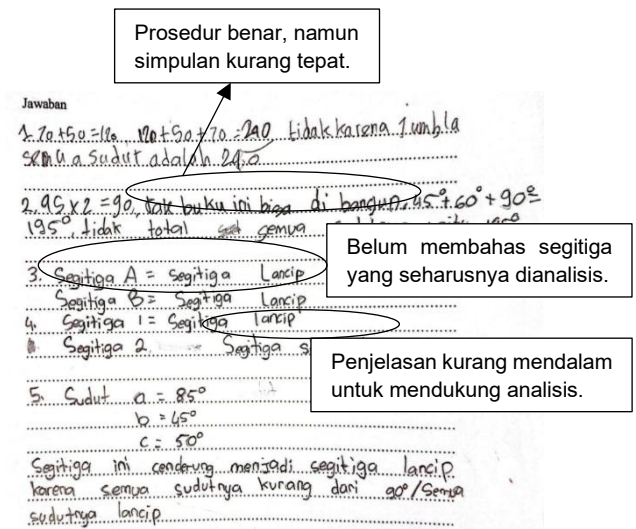 Prosedur benar, namun
simpulan kurang tepat.
Jawaban
1. 70+50=120, 120+50+70=240 tidak karena Jumbla
semua sudut adalah 240
2. 45 x 2 = 90, tak buku ini bisa di bangun. 45° + 60° + 90° =
195°, tidak total semua
Belum membahas segitiga
yang seharusnya dianalisis.
3. Segitiga A = segitiga Lancip
Segitiga B = Segitiga Lancip
4. Segitiga 1 = Segitiga lancip
Segitiga 2 = Segitiga s
Penjelasan kurang mendalam
untuk mendukung analisis.
5. Sudut a = 85°
b = 45°
c = 50°
Segitiga ini cenderung menjadi segitiga lancip
karena semua sudutnya kurang dari 90°/Semua
sudutnya lancip